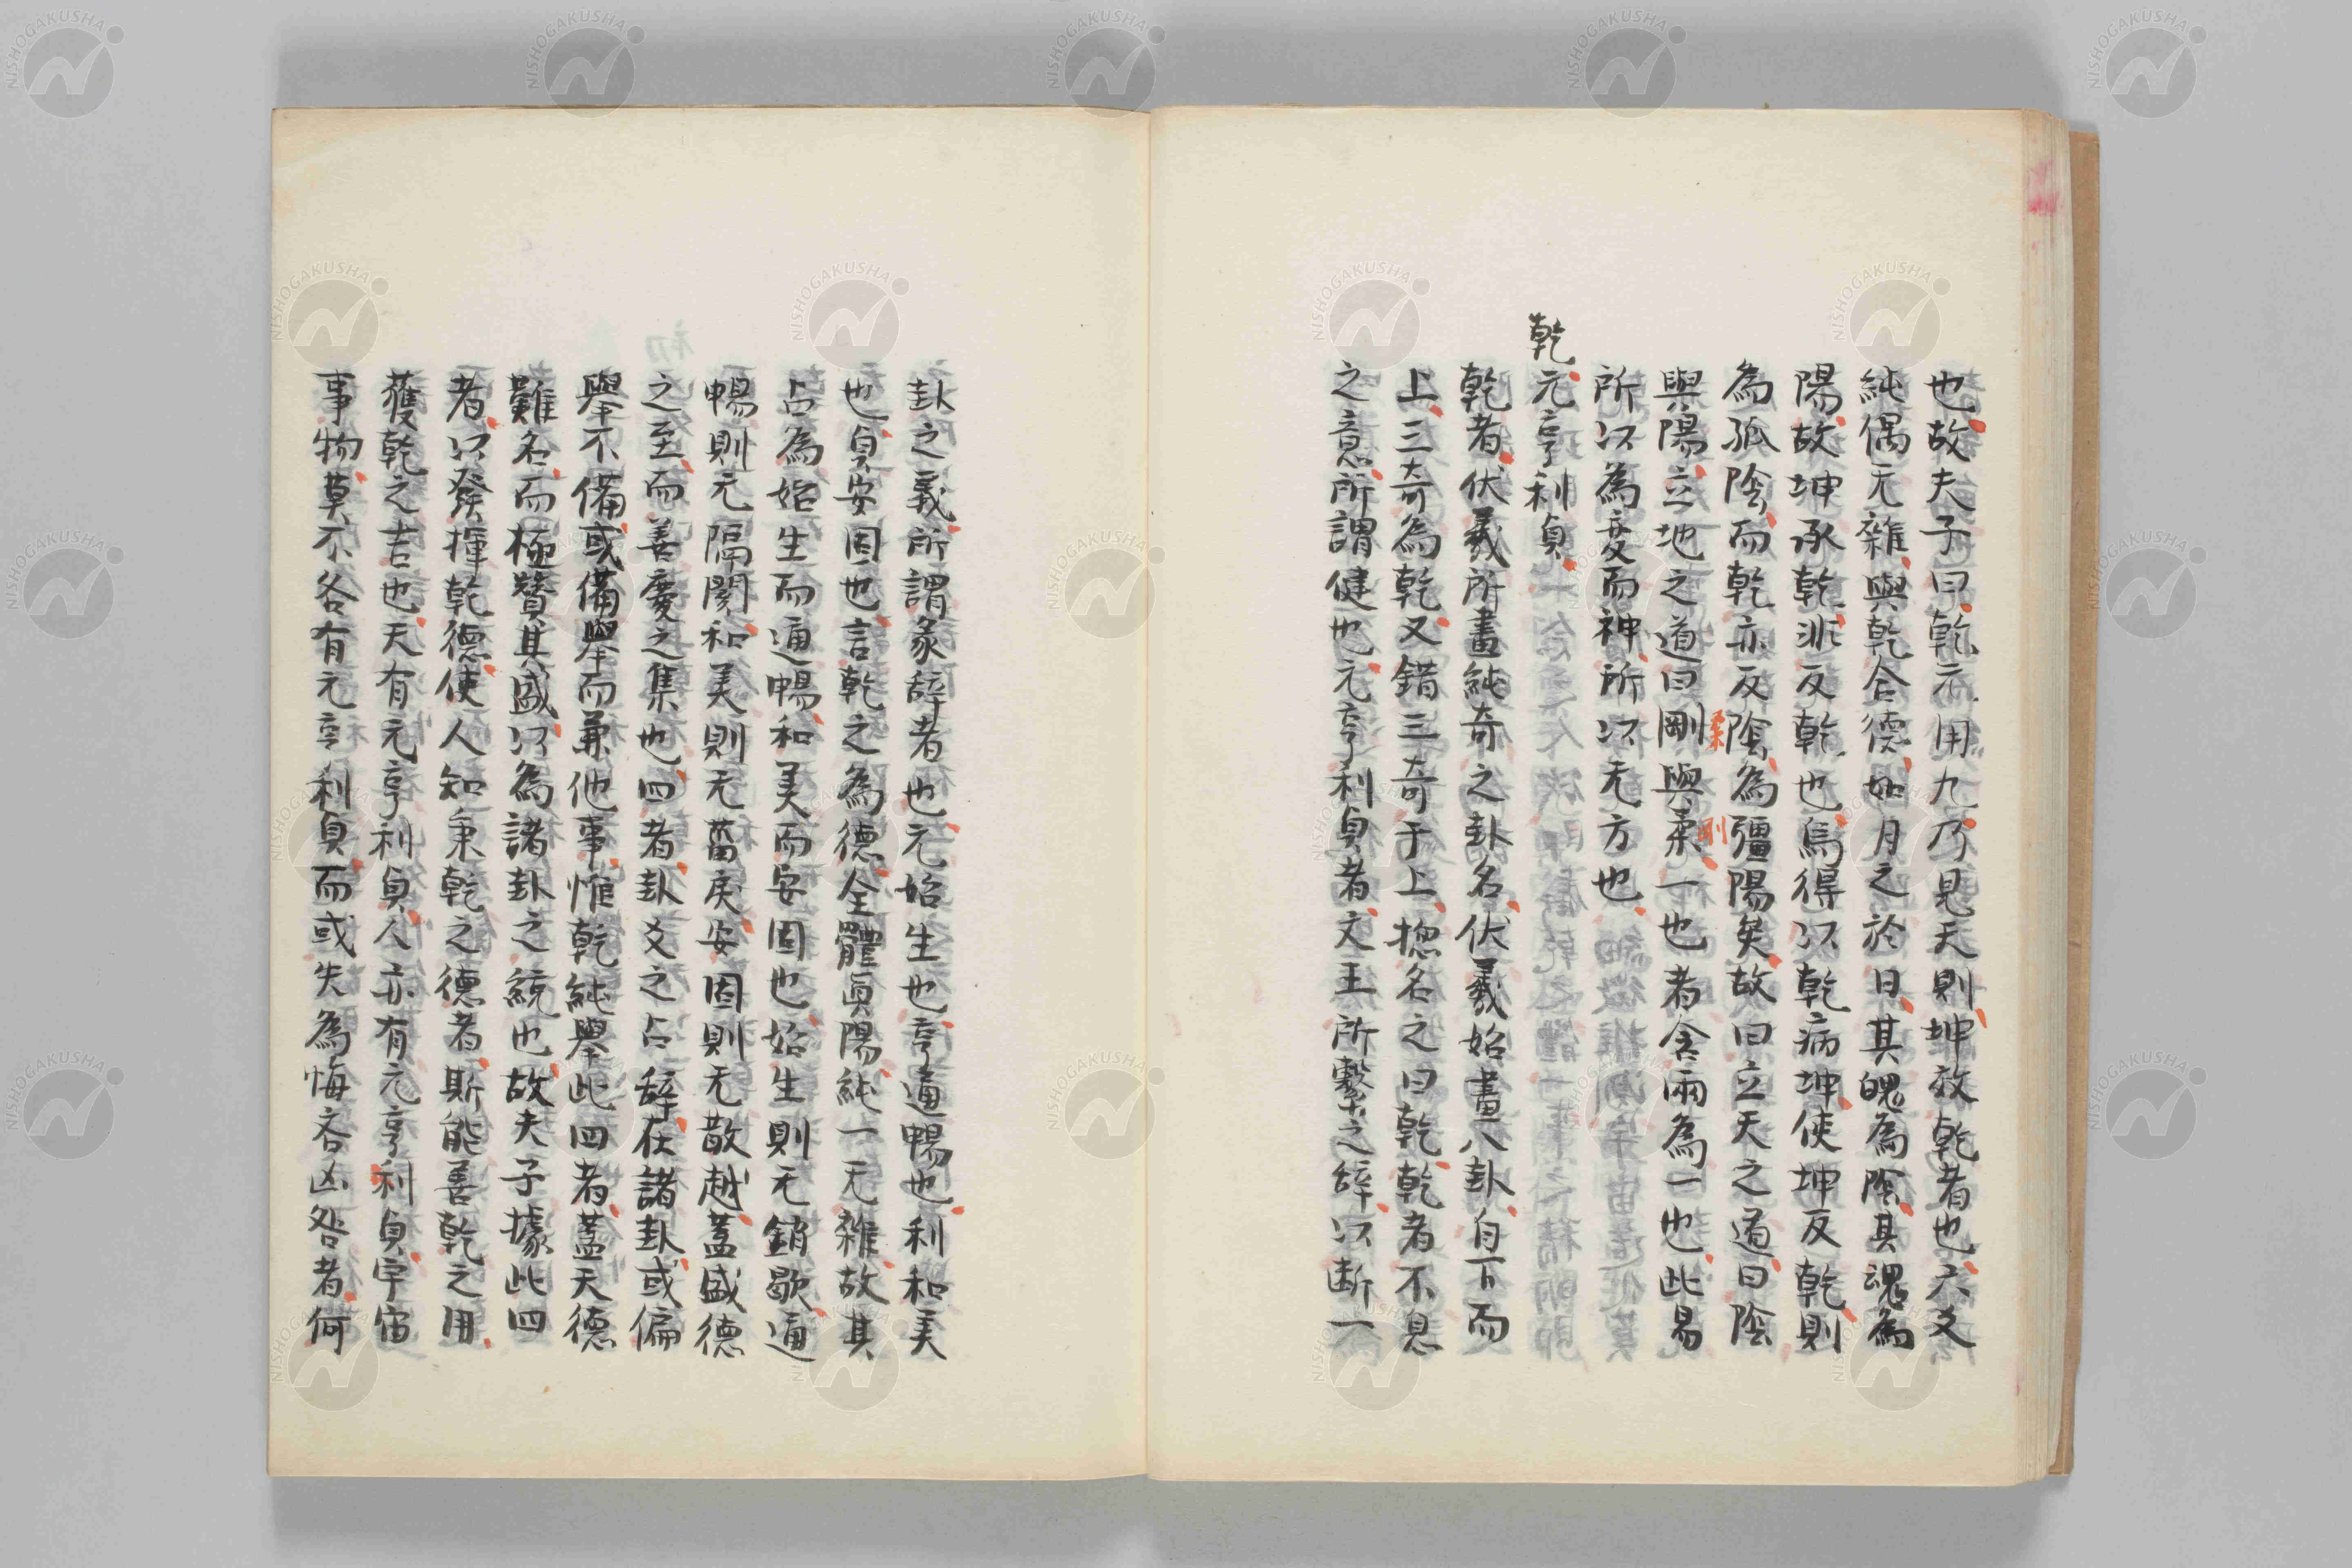 也故夫子曰乾元用九乃見天則坤效乾者也六爻
純偶无雜與乾合德如月之於日其魄為陰其魂為
陽故坤承乾非反乾也烏得以乾病坤使坤反乾則
為孤陰而乾亦反陰為彊陽矣故曰立天之道曰陰
柔 剛
與陽立地之道曰剛與柔一也者含兩為一也此易
所以為変而神所以无方也
乾元亨利貞
乾者伏羲所畫純奇之卦名伏羲始畫八卦自下而
上三奇為乾又錯三奇于上揔名之曰乾乾者不息
之意所謂健也元亨利貞者文王所繫之辞以断一
卦之義所謂彖辞者也元始生也亨通暢也利和美
也貞安固也言乾之為德全體眞陽純一无雜故其
占為始生而通暢和美而安固也始生則无銷歇通
暢則无隔閡和美則无菑戾安固則无散越蓋盛德
之至而善慶之集也四者卦爻之占辞在諸卦或偏
舉不備或備舉而兼他事惟乾純舉此四者蓋天德
難名而極贊其盛以為諸卦之統也故夫子據此四
者以發揮乾德使人知秉乾之德者斯能善乾之用
獲乾之吉也天有元亨利貞人亦有元亨利貞宇宙
事物莫不各有元亨利貞而或失為悔吝凶咎者何
NISHOGAKUSHA